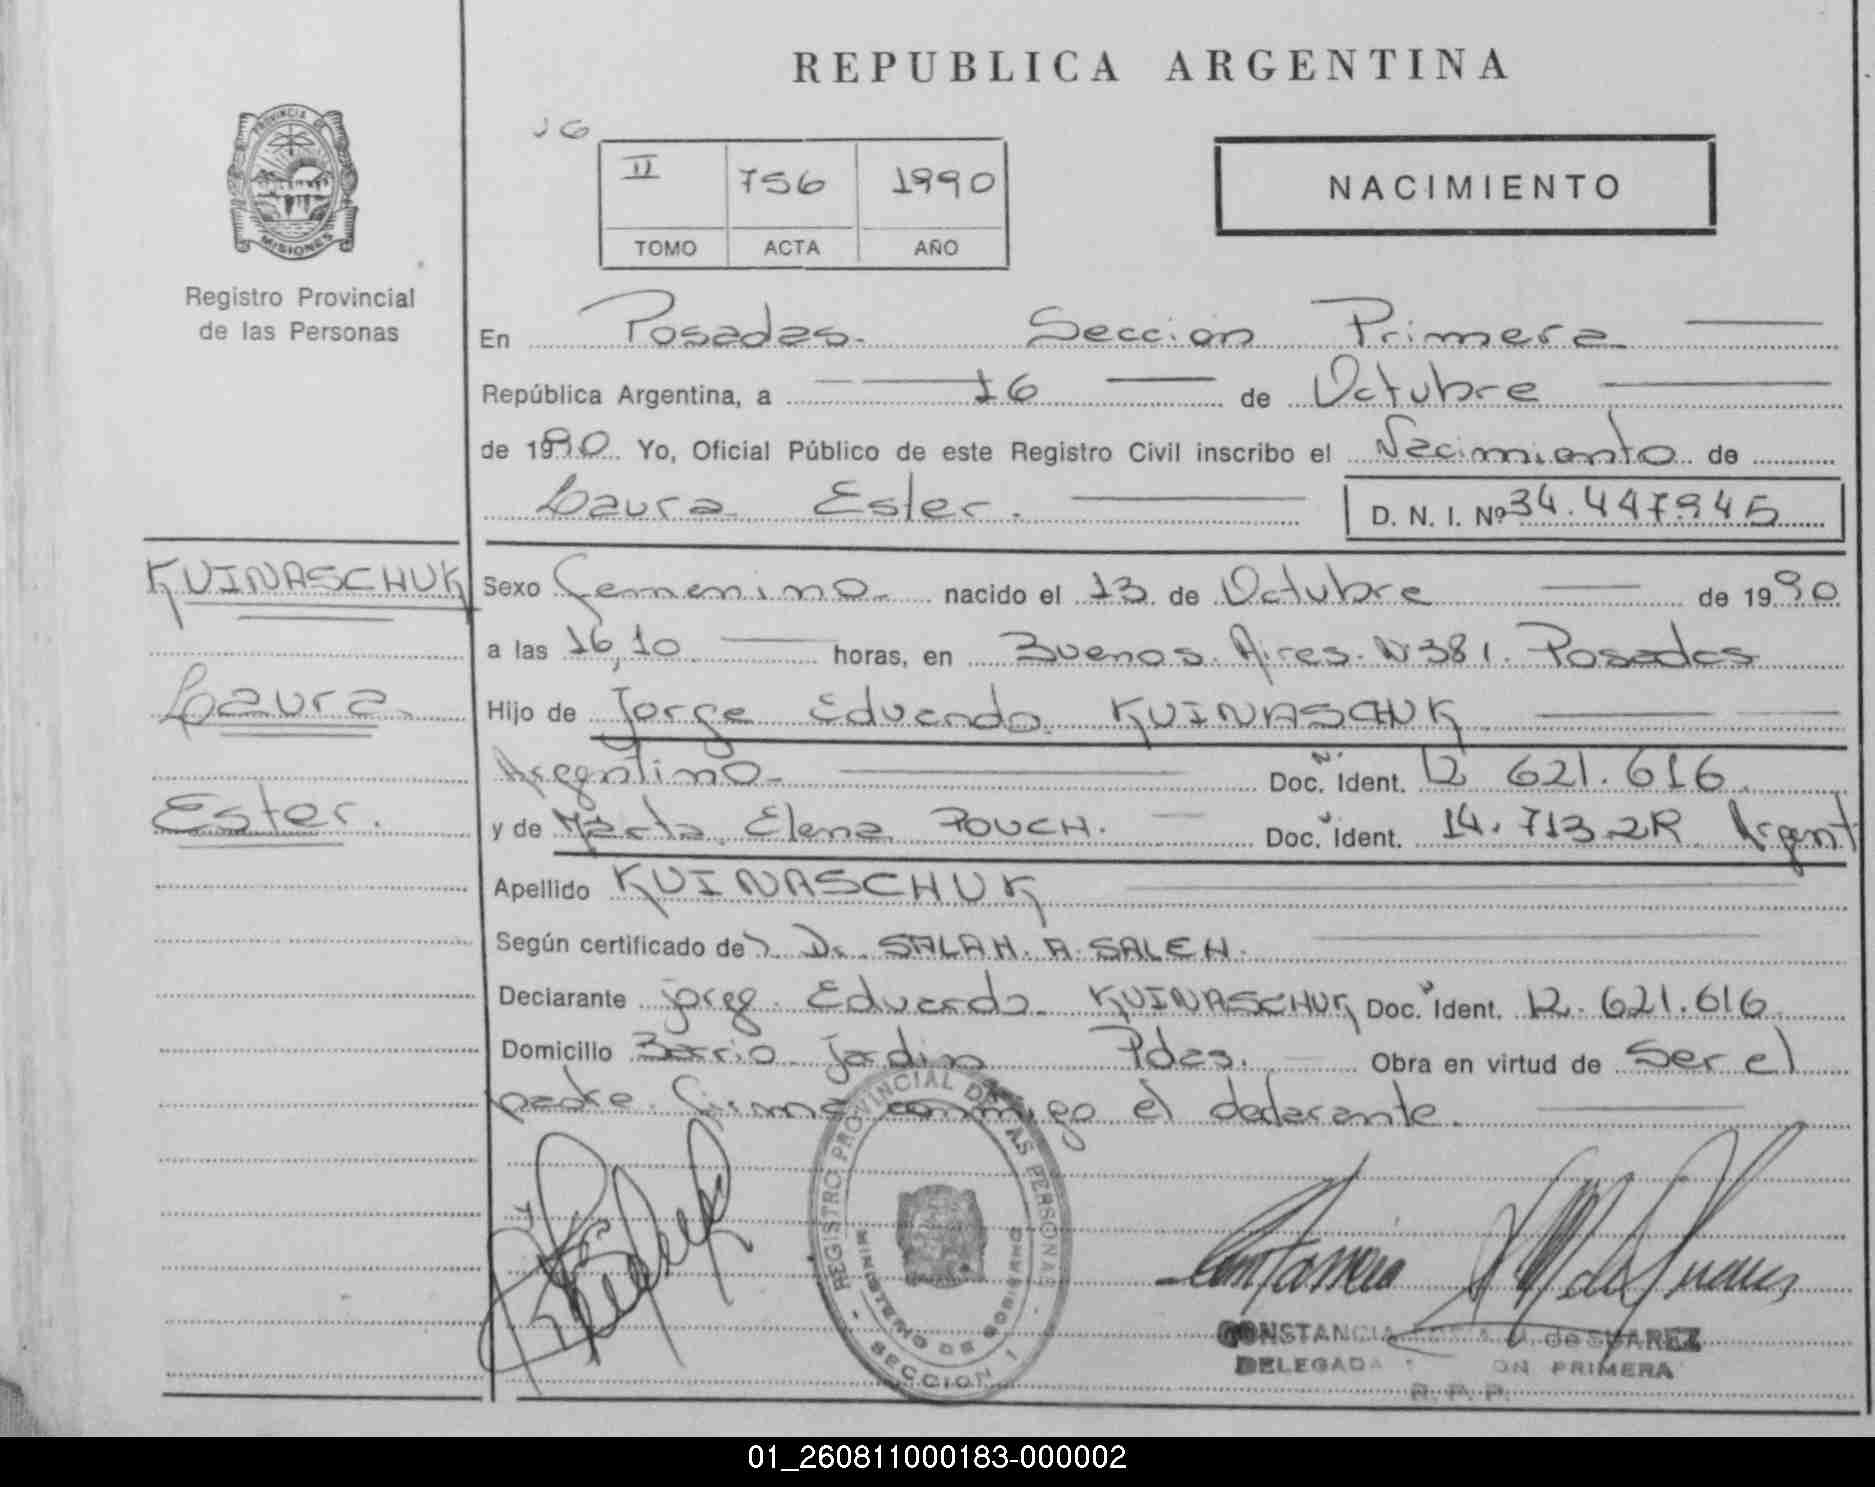 REPUBLICA ARGENTINA
PROVINCIA DE
MISIONES
Registro Provincial
de las Personas
II 756 1990
TOMO ACTA AÑO
NACIMIENTO
En Posadas. Seccion Primera
República Argentina, a 16 de Octubre
de 1990 Yo, Oficial Público de este Registro Civil inscribo el Nacimiento de
Laura Ester.
D. N. I. Nº 34.447945
KUINASCHUK
Laura.
Ester.
Sexo Femenino. nacido el 13 de Octubre de 1990
a las 16,10 horas, en Buenos Aires N 381. Posadas
Hijo de Jorge Eduardo KUINASCHUK
Aregntino. Doc. Ident. 12 621.616
y de Marta Elena POUCH. Doc. Ident. 14.713 Argent
Apellido KUINASCHUK
Según certificado de Dr. SALAH. A. SALEH.
Declarante Jorge Eduardo KUINASCHUK Doc. Ident. 12.621.616
Domicilio Barrio Jardin Pdas. Obra en virtud de Ser el
padre. firma conmigo el declarante.
REGISTRO PROVINCIAL DE LAS PERSONAS
MINISTERIO DE GOBIERNO
SECCION 1
CONSTANCIA de SUAREZ
DELEGADA PRIMERA
R. P. P.
01_260811000183-000002